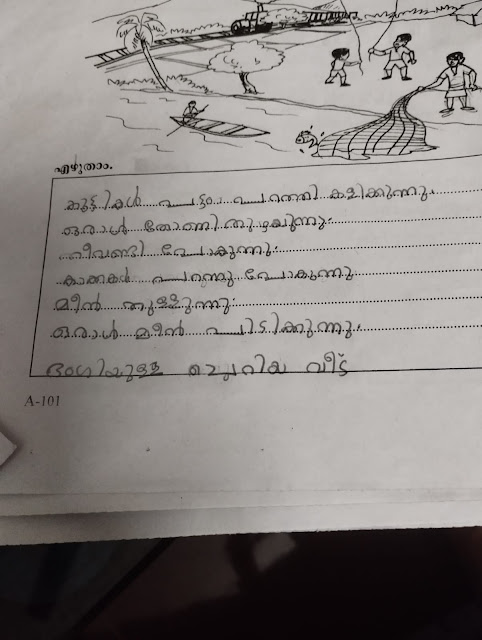 എഴുതാം.
കുട്ടികൾ പട്ടം പറത്തി കളിക്കുന്നു.
ഒരാൾ തോണി തുഴയുന്നു.
തീവണ്ടി പോകുന്നു.
കാക്കകൾ പറന്നു പോകുന്നു.
മീൻ തുള്ളുന്നു.
ഒരാൾ മീൻ പിടിക്കുന്നു.
ഭംഗിയുള്ള ചെറിയ വീട്
A-101